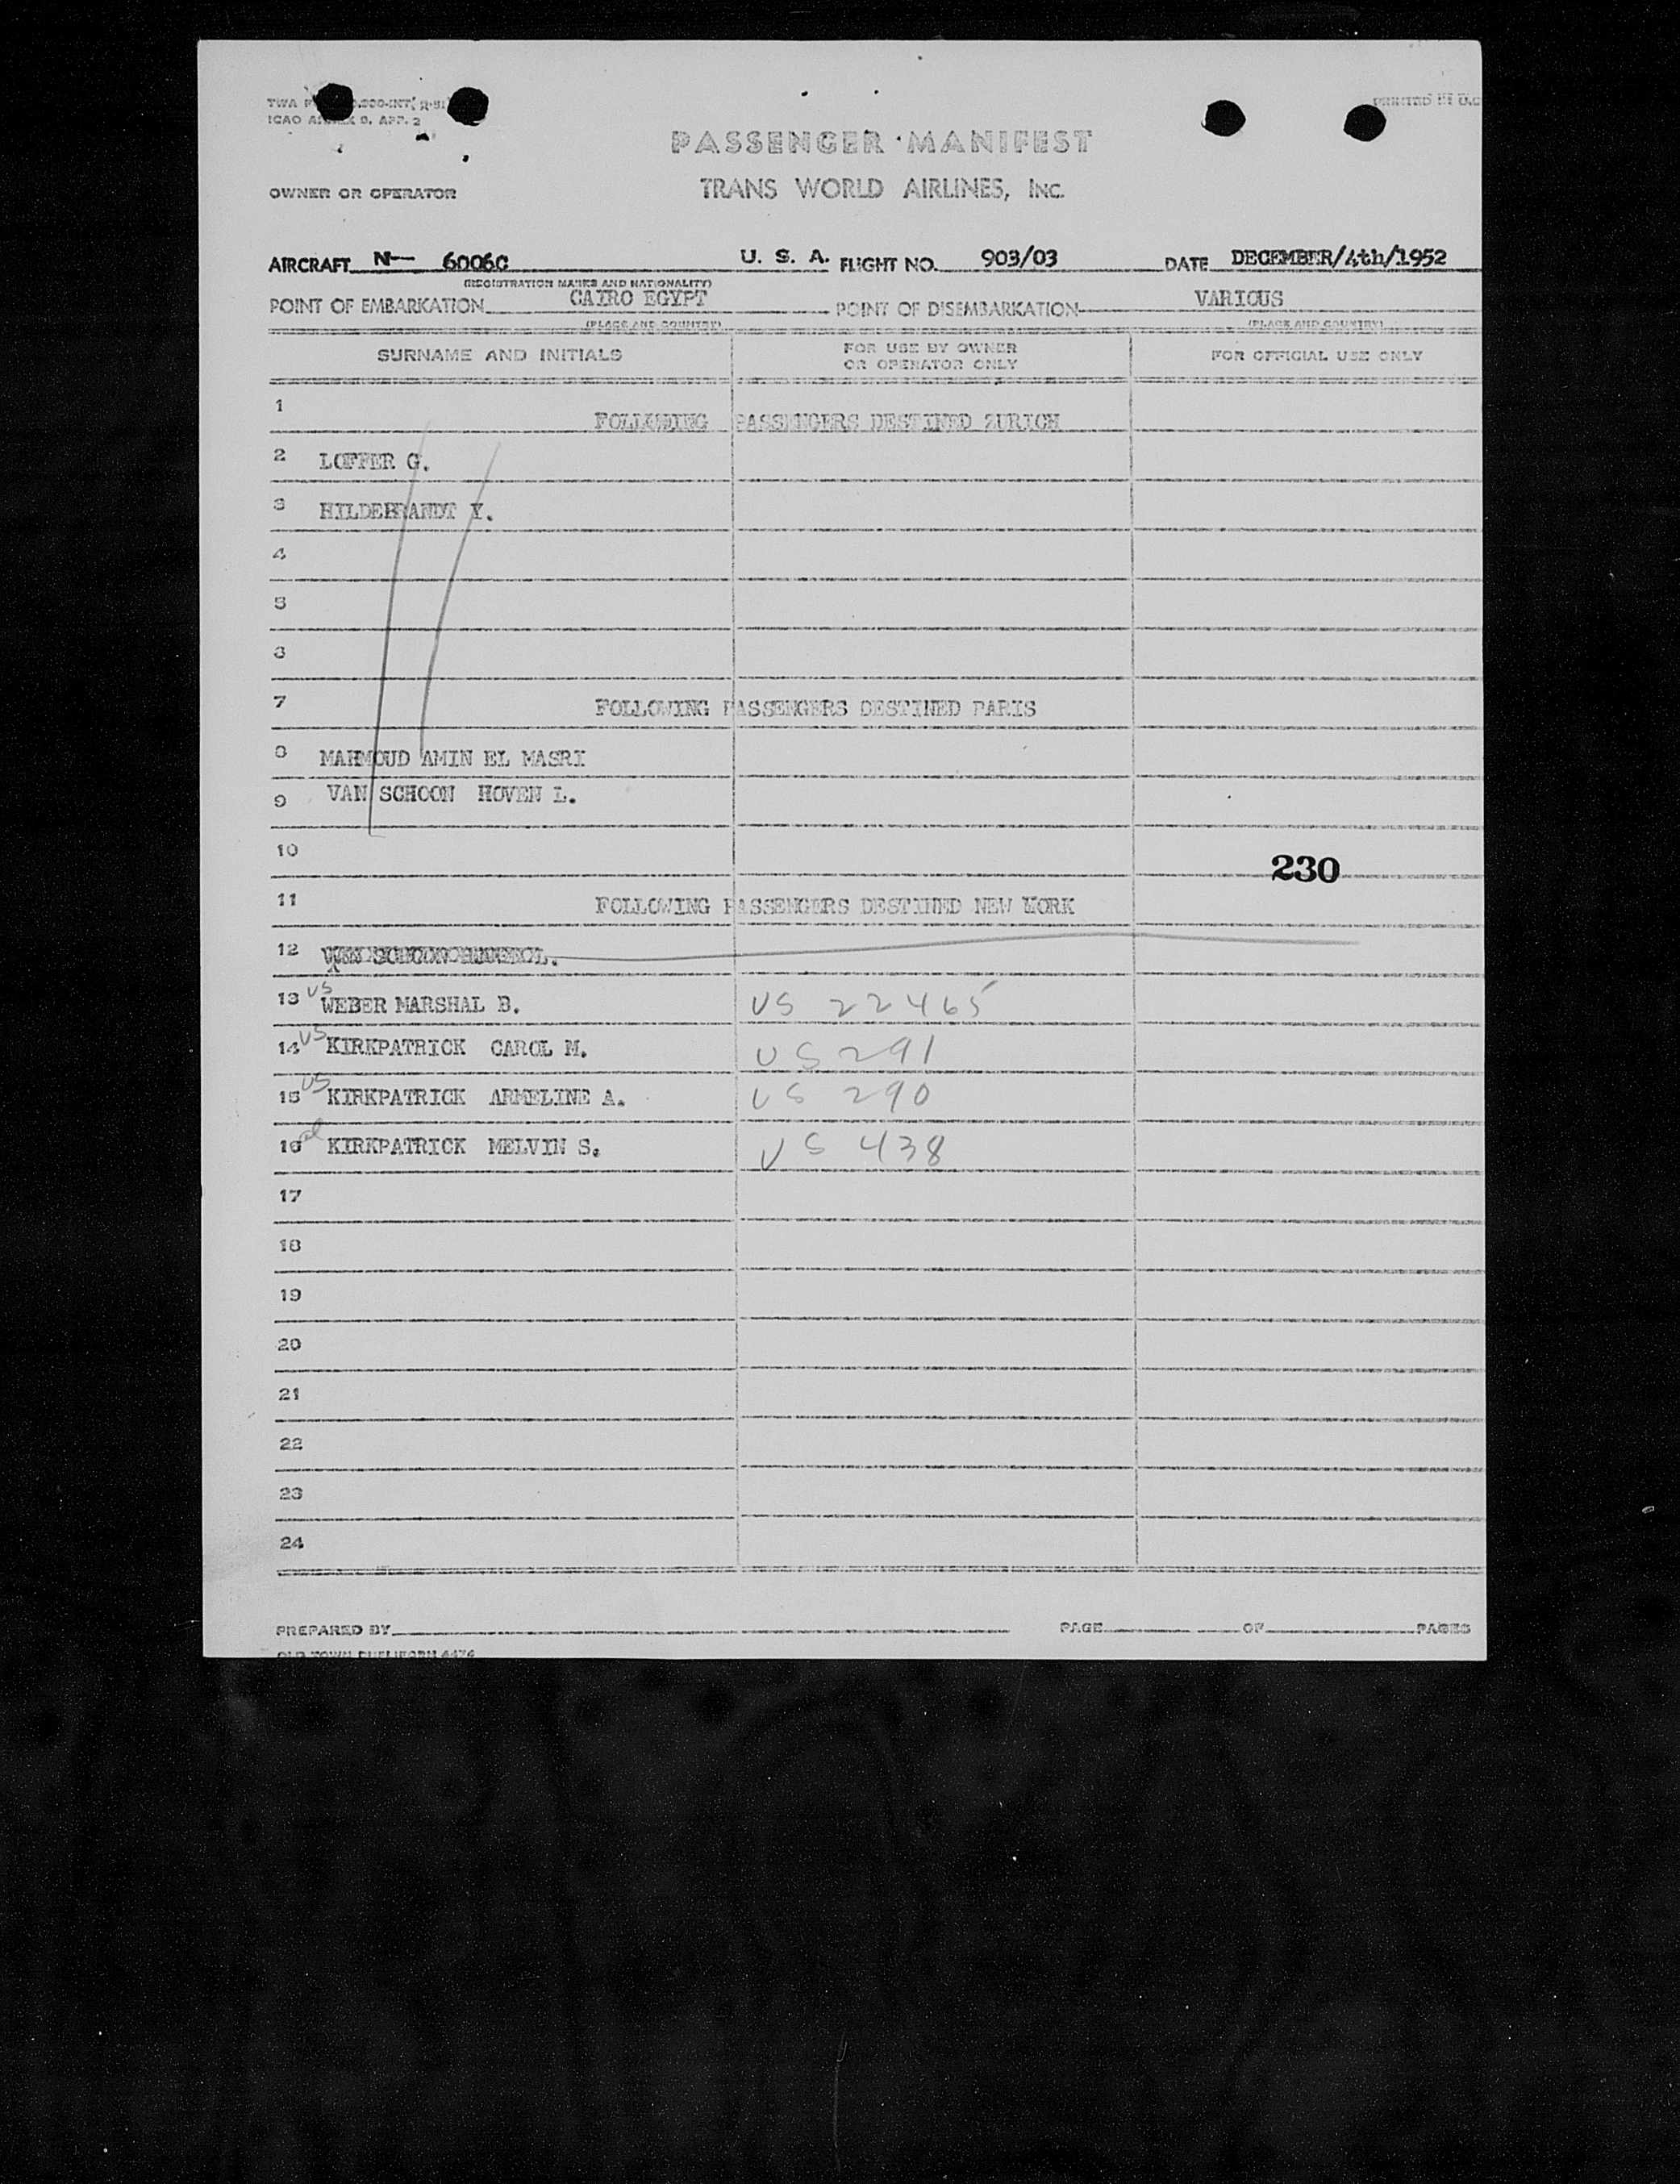 PASSENGER MANIFEST
OWNER OR OPERATOR
TRANS WORLD AIRLINES, INC.
AIRCRAFT N— 6006C U. S. A. FLIGHT NO. 903/03 DATE DECEMBER/4th/1952
(REGISTRATION MARKS AND NATIONALITY)
POINT OF EMBARKATION CAIRO EGYPT POINT OF DISEMBARKATION VARIOUS
(PLACE AND COUNTRY) (PLACE AND COUNTRY)
SURNAME AND INITIALS
FOR USE BY OWNER
OR OPERATOR ONLY
FOR OFFICIAL USE ONLY
1 FOLLOWING PASSENGERS DESTINED ZURICH
2 LOFFER G.
3 HILDEBRANDT Y.
4
5
6
7 FOLLOWING PASSENGERS DESTINED PARIS
8 MAHMOUD AMIN EL MASRI
9 VAN SCHOON HOVEN L.
10
230
11 FOLLOWING PASSENGERS DESTINED NEW YORK
12
13 US WEBER MARSHAL B. US 22465
14 US KIRKPATRICK CAROL M. US 291
15 US KIRKPATRICK ARMELINE A. US 290
16 KIRKPATRICK MELVIN S. US 438
17
18
19
20
21
22
23
24
PREPARED BY PAGE OF PAGES